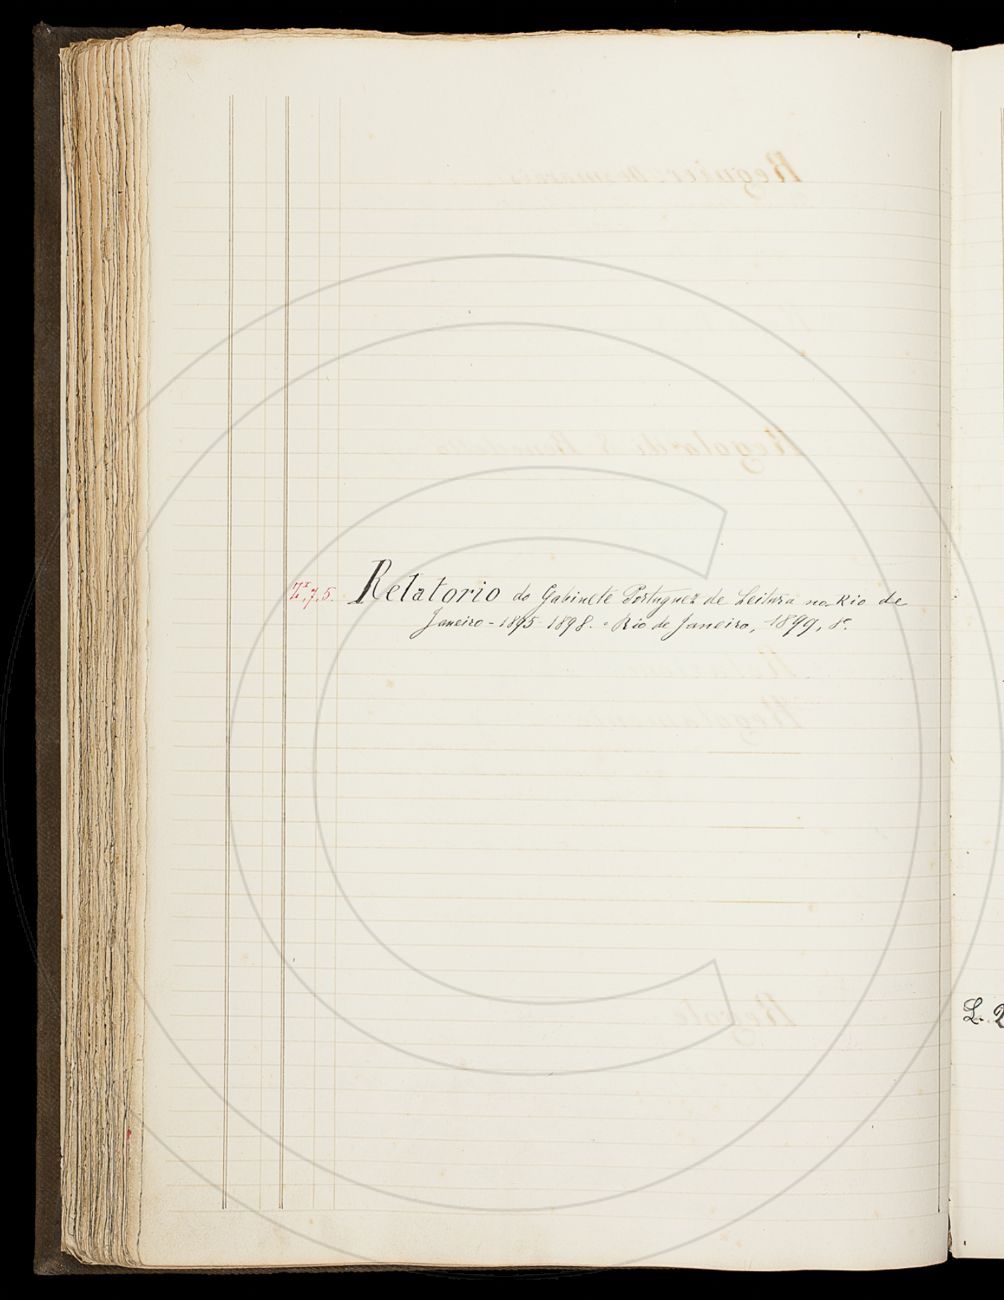 Z.I.7.5. Relatorio do Gabinete Portuguez de Leitura no Rio de
Janeiro - 1895-1898. - Rio de Janeiro, 1899, 8º.
L. 2